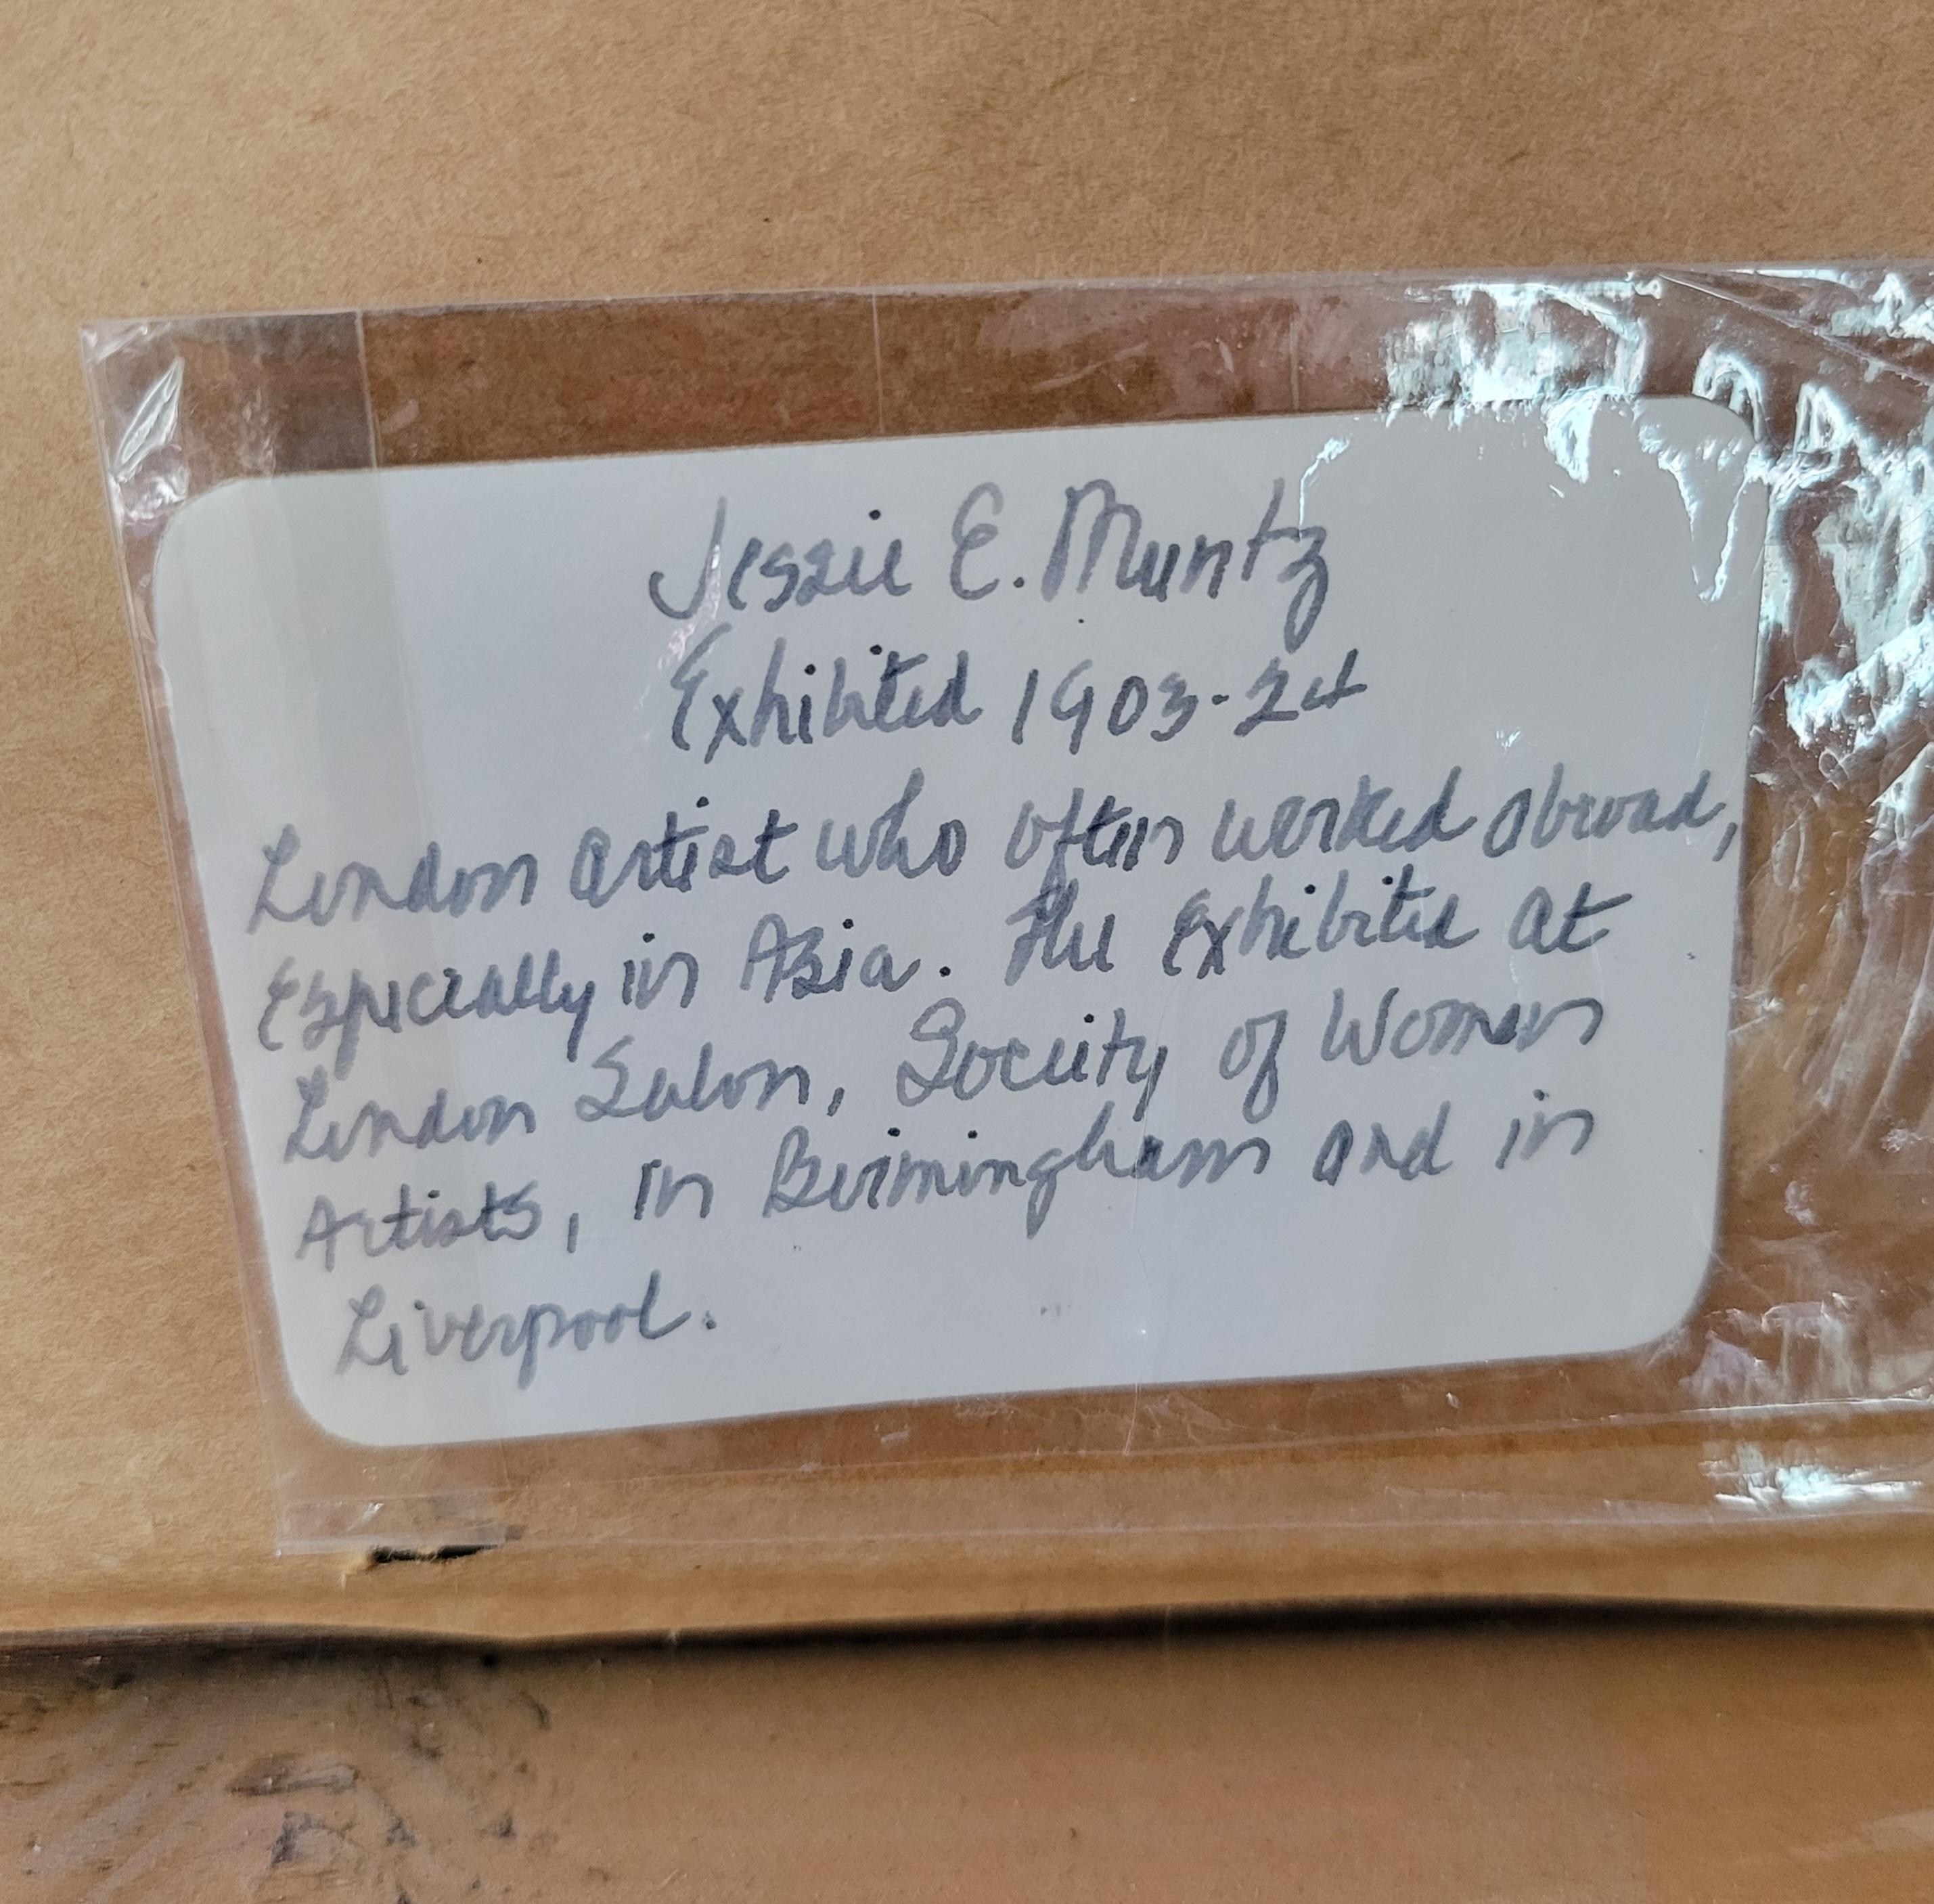 Jessie E. Muntz
Exhibited 1903-24
London artist who often worked abroad,
Especially in Asia. She Exhibited at
London Salon, Society of Women
Artists, in Birmingham and in
Liverpool.